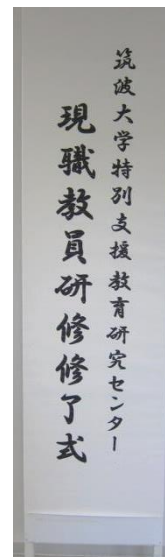 筑波大学特別支援教育研究センター
現職教員研修修了式